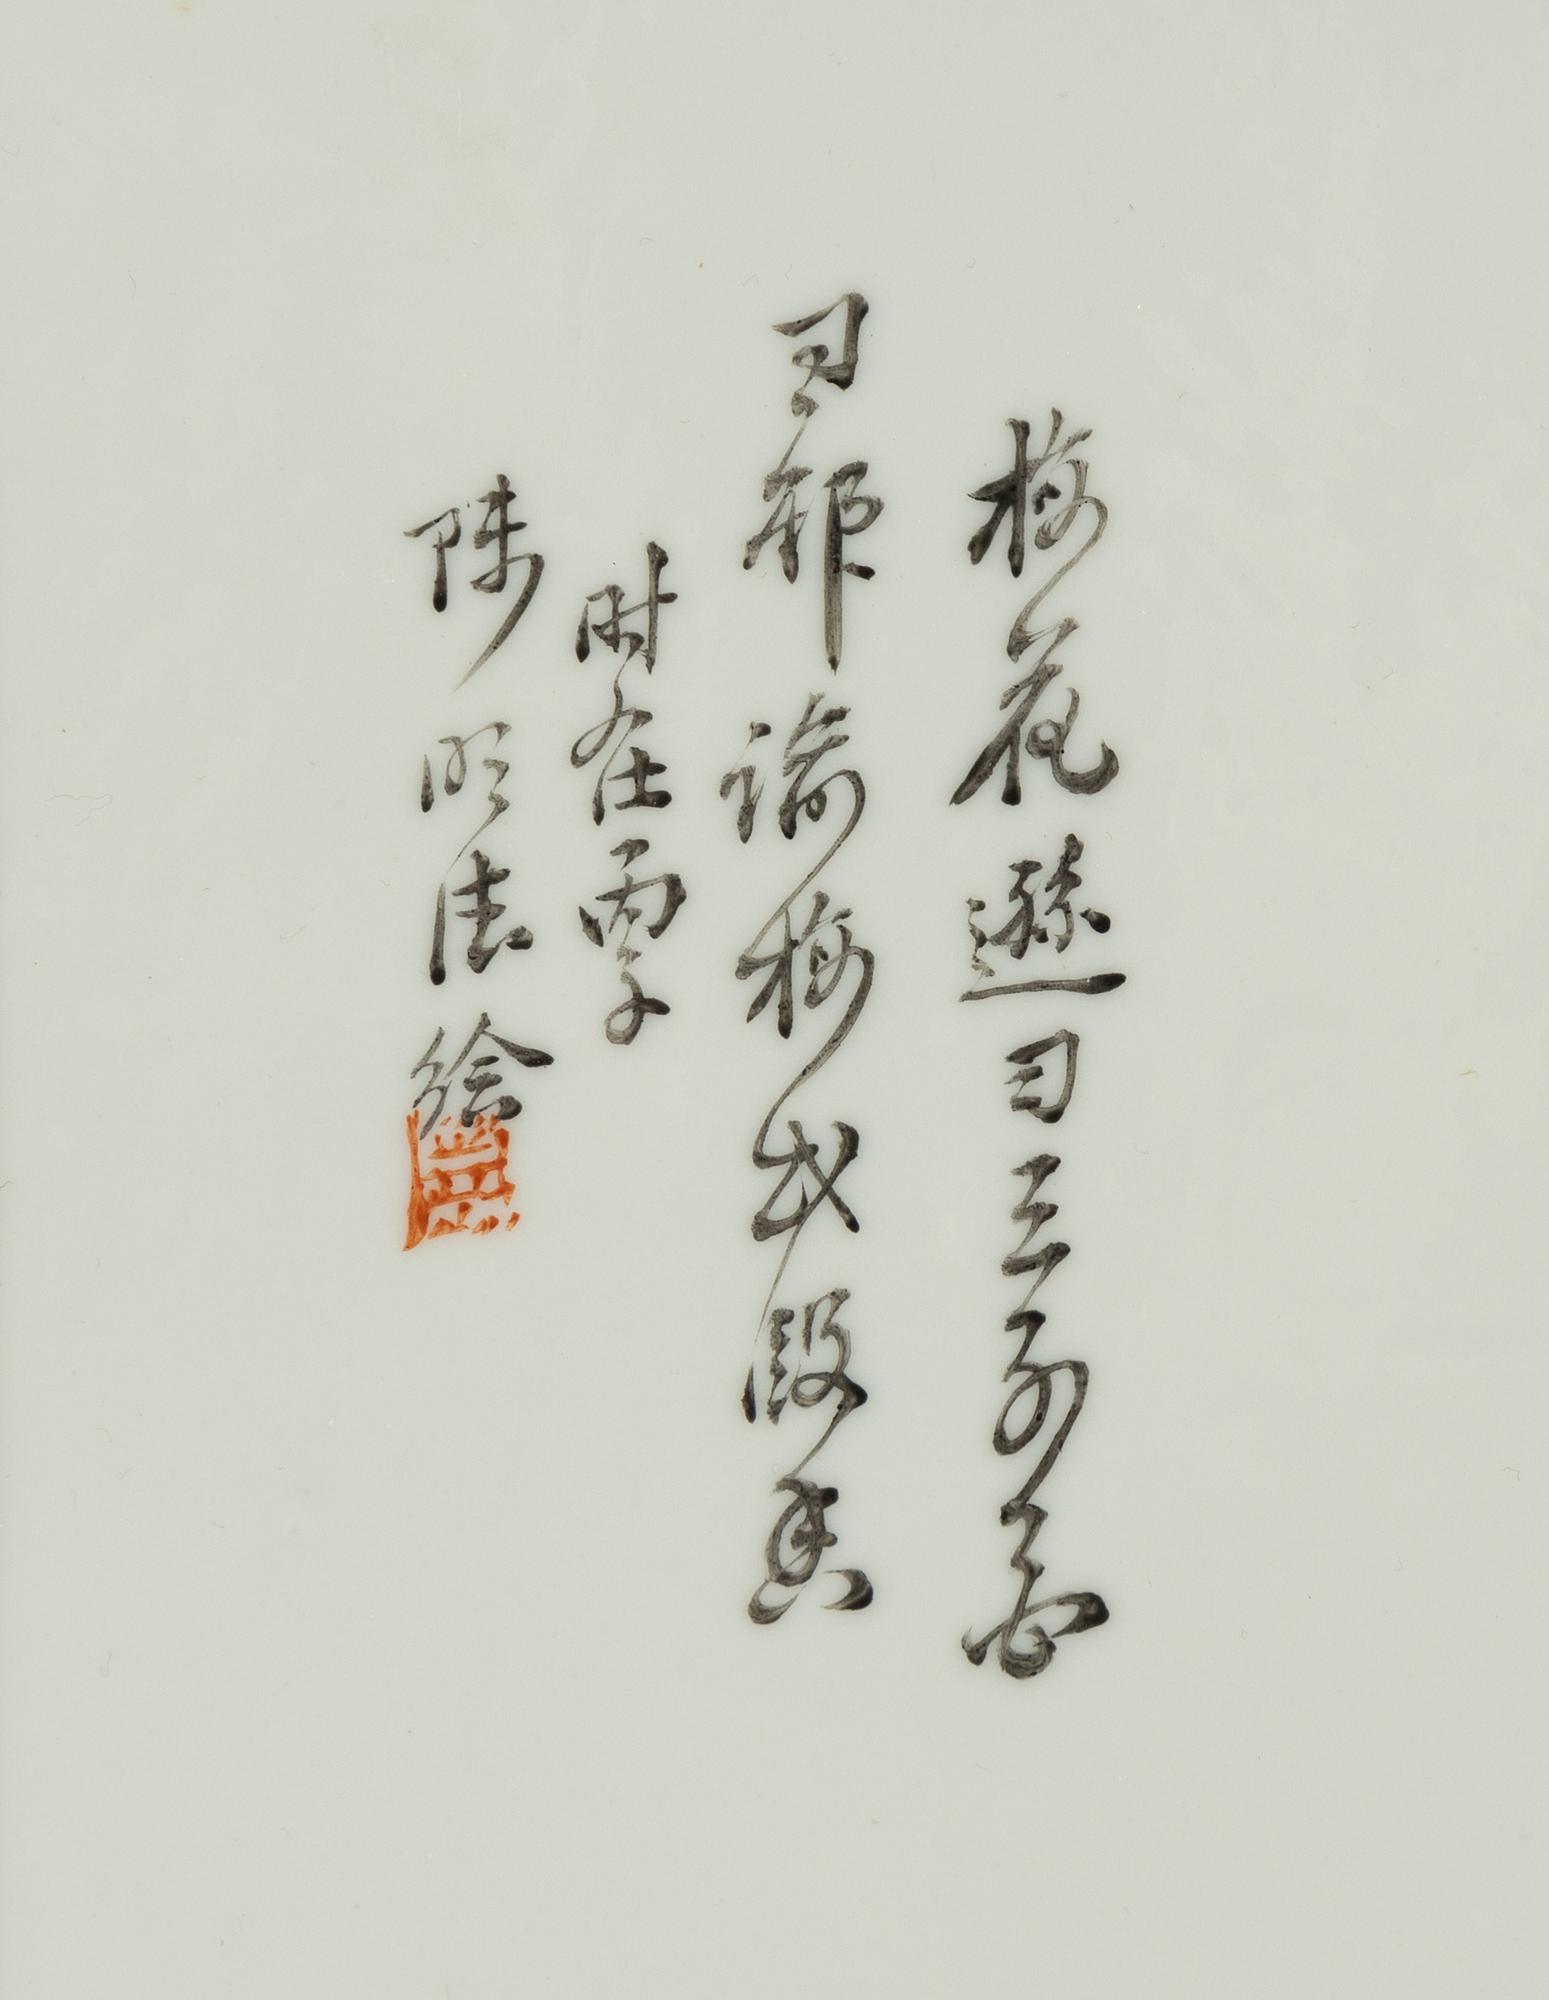 梅花遜雪三分白
雪却輸梅弌段香
時在丙子
陳明繪